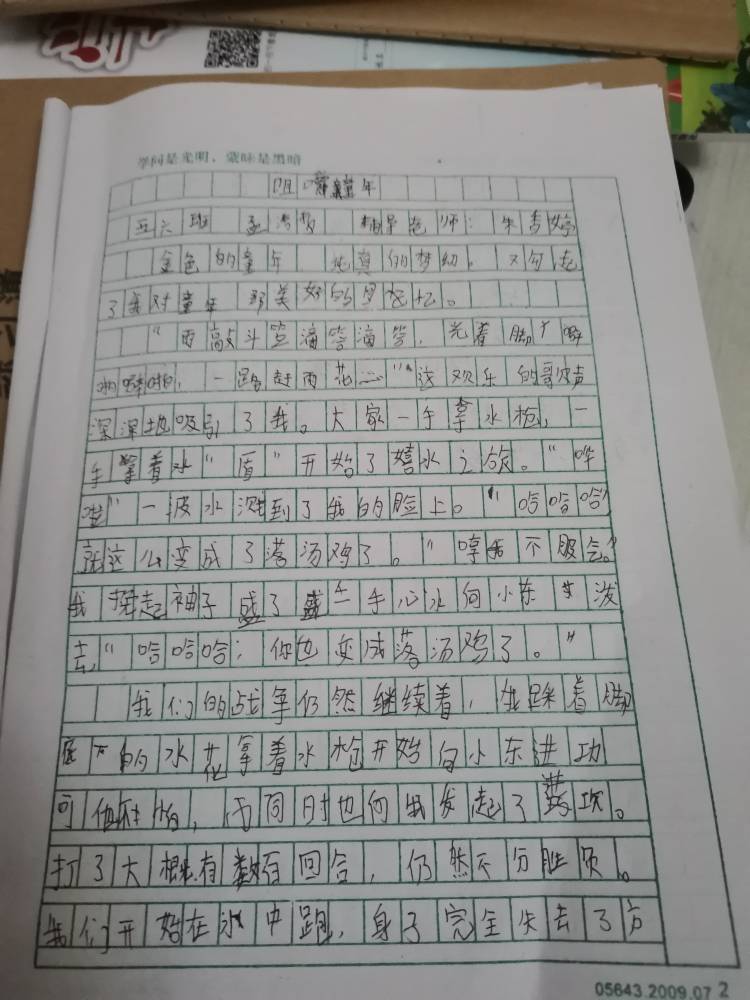 学问是光明，蒙昧是黑暗
阻嚼童年
五六班 孟 辅导老师：朱秀婷
金色的童年 纯真的梦幻，又勾起
了我对童年 那美好的回忆。
“雨敲斗笠滴答滴答，光着脚丫噼
啪噼啪，一路赶雨花……”这欢乐的歌声
深深地吸引了我。大家一手拿水枪，一
手拿着水“盾”开始了嬉水之旅。“哗
啦”一波水溅到了我的脸上。“哈哈哈
就这么变成了落汤鸡了。“哼 不服气。”
我撸起袖子盛了盛一手心水向小东 泼
去“哈哈哈；你也变成落汤鸡了。”
我们的战争仍然继续着，我踩着脚
底下的水花拿着水枪开始向小东进功
可他 ，与同时也向我发起了 攻。
打了大概有数百回合，仍然不分胜负。
我们开始在水中跑，身子完全失去了方
05643.2009.07 2